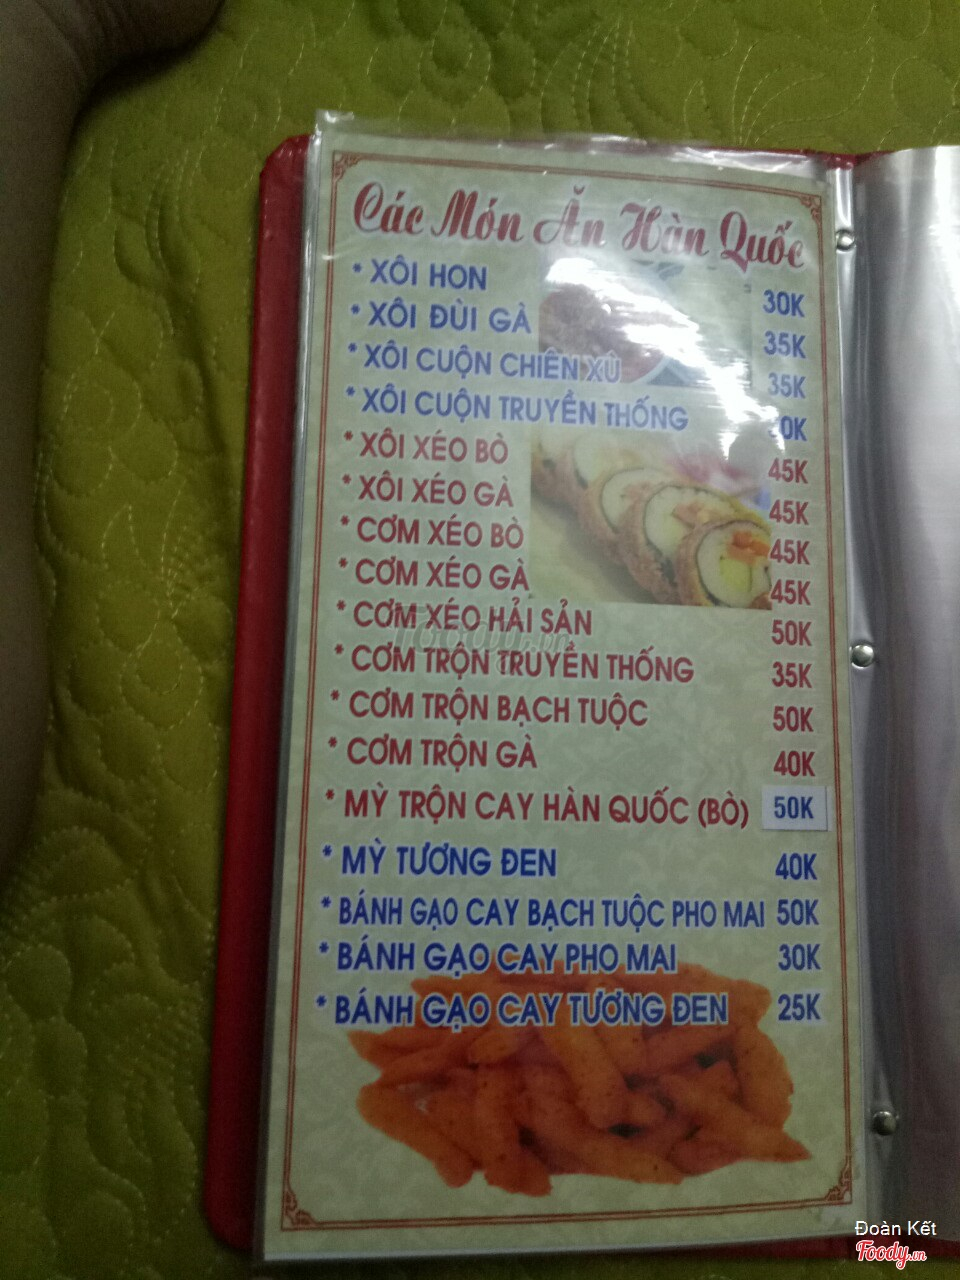 Các Món Ăn Hàn Quốc
* XÔI HON 30K
* XÔI ĐÙI GÀ 35K
* XÔI CUỘN CHIÊN XÙ 35K
* XÔI CUỘN TRUYỀN THỐNG
* XÔI XÉO BÒ 45K
* XÔI XÉO GÀ 45K
* CƠM XÉO BÒ 45K
* CƠM XÉO GÀ 45K
* CƠM XÉO HẢI SẢN 50K
* CƠM TRỘN TRUYỀN THỐNG 35K
* CƠM TRỘN BẠCH TUỘC 50K
* CƠM TRỘN GÀ 40K
* MỲ TRỘN CAY HÀN QUỐC (BÒ) 50K
* MỲ TƯƠNG ĐEN 40K
* BÁNH GẠO CAY BẠCH TUỘC PHO MAI 50K
* BÁNH GẠO CAY PHO MAI 30K
* BÁNH GẠO CAY TƯƠNG ĐEN 25K
Foody.vn
Đoàn Kết
Foody.vn